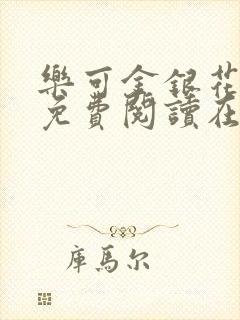 樂可金銀花
免費閱讀在
庫馬尔